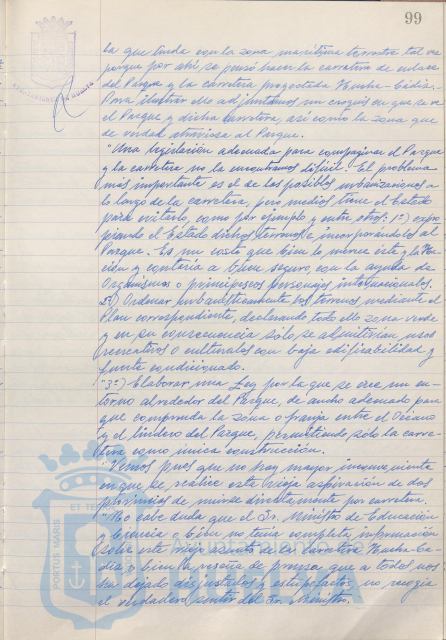 99
la que linda con la zona marítima terrestre tal vez
porque por ahí, se pensó hacer la carretera de enlace
del Parque y la carretera proyectada Huelva-Cádiz.
Para ilustrar ello adjuntamos un croquis en que se ve
el Parque y dicha carretera, así como la zona que
de verdad atraviesa al Parque.
"Una legislación adecuada para compaginar el Parque
y la carretera no la encontramos difícil. El problema
más importante es el de las posibles urbanizaciones a
lo largo de la carretera, pero medios tiene el Estado
para evitarlo, como por ejemplo y entre otros: 1º) expro
piando el Estado dichos terrenos e incorporándolos al
Parque. Es un costo que bien lo merece éste y la Na-
ción y contaría a buen seguro, con la ayuda de
Organismos o principescos personajes internacionales.
2º) Ordenar urbanísticamente los terrenos mediante el
Plan correspondiente, declarando todo ello zona verde
y en su consecuencia sólo se admitirían usos
recreativos o culturales con baja edificabilidad y
fuerte condicionado.
"3º) Elaborar una Ley por la que se cree un en-
torno alrededor del Parque, de ancho adecuado para
que comprenda la zona o franja entre el Océano
y el lindero del Parque, permitiendo sólo la carre-
tera como única construcción.
"Vemos pues que no hay mayor inconveniente
en que se realice esta vieja aspiración de dos
provincias de unirse directamente por carretera.
"No cabe duda que el Sr. Ministro de Educación
y Ciencia o bien no tenía completa información
sobre este viejo asunto de la carretera Huelva-Cá-
diz o bien la reseña de prensa que a todos nos
ha dejado disgustados y estupefactos no recogía
el verdadero sentir del Sr. Ministro.
PORTUS MARIS